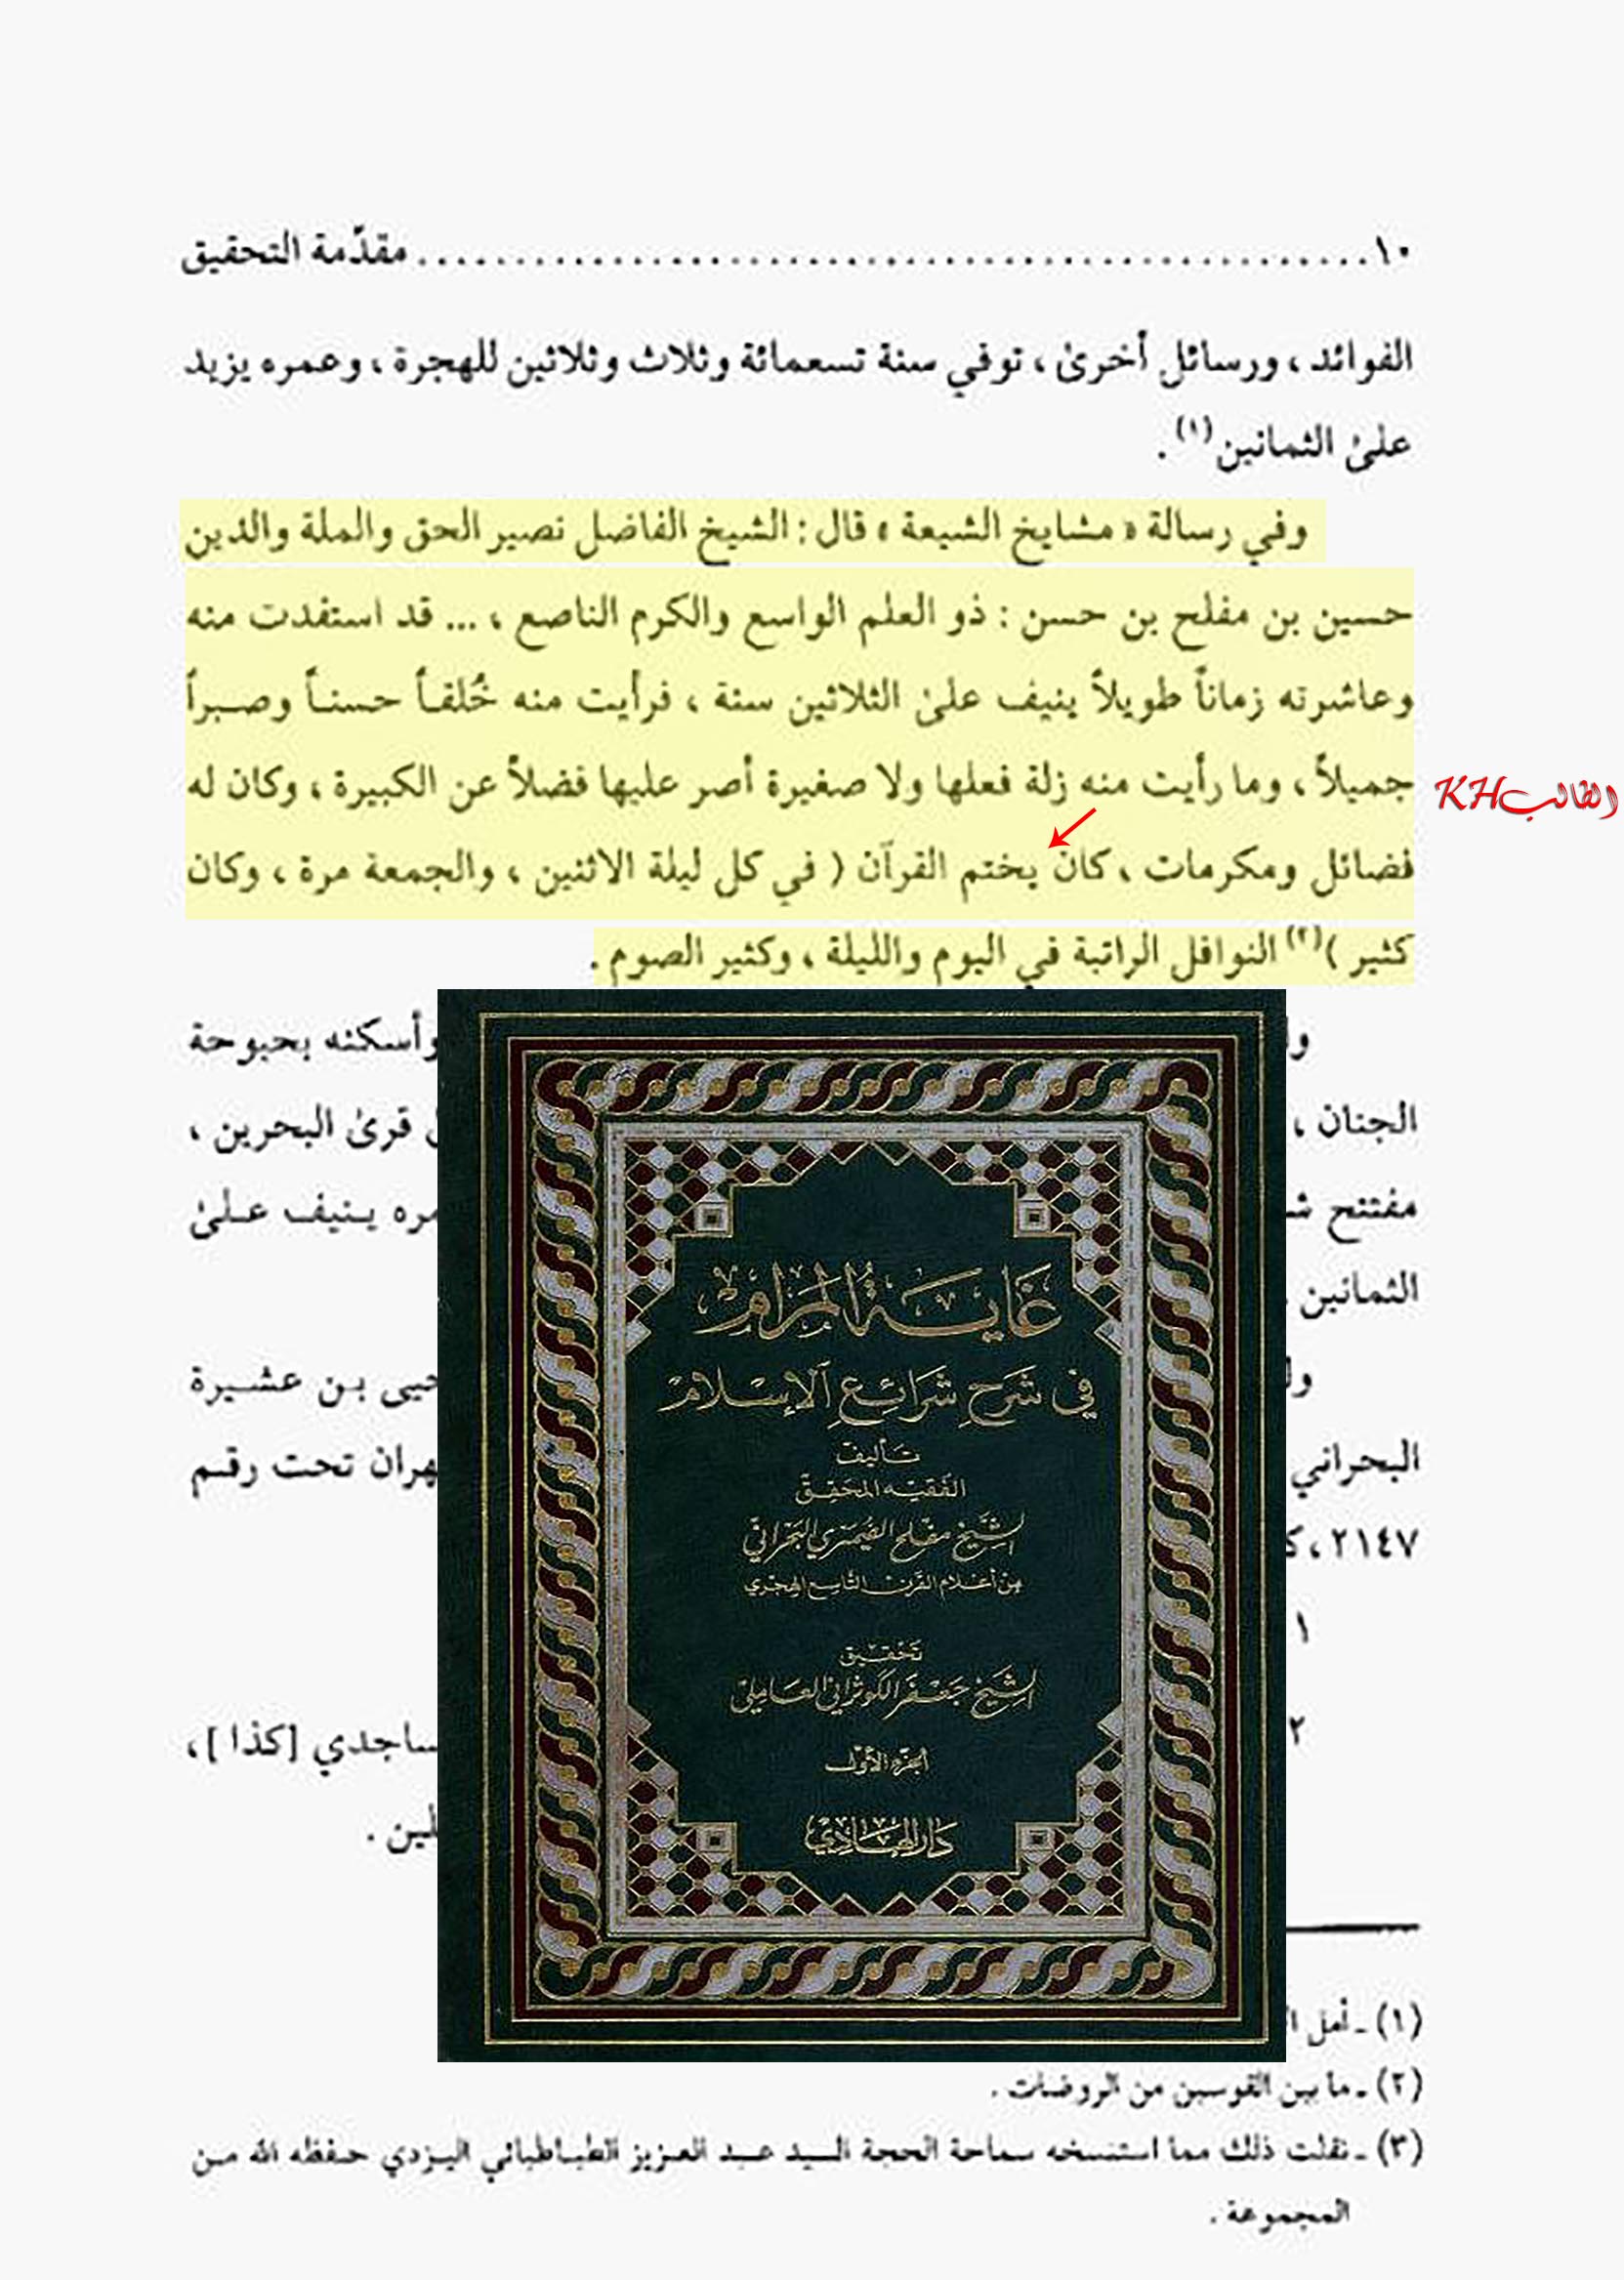 ١٠ ........................................................ مقدّمة التحقيق
الفوائد ، ورسائل أخرىٰ ، توفي سنة تسعمائة وثلاث وثلاثين للهجرة ، وعمره يزيد
علىٰ الثمانين(١) .
وفي رسالة « مشايخ الشيعة » قال : الشيخ الفاضل نصير الحق والملة والدين
حسين بن مفلح بن حسن : ذو العلم الواسع والكرم الناصع ، ... قد استفدت منه
وعاشرته زماناً طويلاً ينيف علىٰ الثلاثين سنة ، فرأيت منه خُلقاً حسناً وصبراً
جميلاً ، وما رأيت منه زلة فعلها ولا صغيرة أصر عليها فضلاً عن الكبيرة ، وكان له
الطالب KH
فضائل ومكرمات ، كان يختم القرآن ( في كل ليلة الاثنين ، والجمعة مرة ، وكان
كثير )(٢) النوافل الراتبة في اليوم والليلة ، وكثير الصوم .
وأسكنه بحبوحة
الجنان ، قرىٰ البحرين ،
مفتتح ينيف علىٰ
الثمانين
بن عشيرة
البحراني تحت رقم
٢١٤٧ ،
١
٢ ساجدي [كذا ] ،
غَايَةُ المَرَامِ
في شَرحِ شَرَائِعِ الإِسْلَام
تأليف
الفقيه المحقق
الشيخ مفلح الصيمري البحراني
من أعلام القرن التاسع الهجري
تحقيق
الشيخ جعفر الكوثراني العاملي
الجزء الأول
دار الهادي
(١) ـ أمل
(٢) ـ ما بين القوسين من الروضات .
(٣) ـ نقلت ذلك مما استنسخه سماحة الحجة السيد عبد العزيز الطباطبائي اليزدي حفظه الله من
المجموعة .